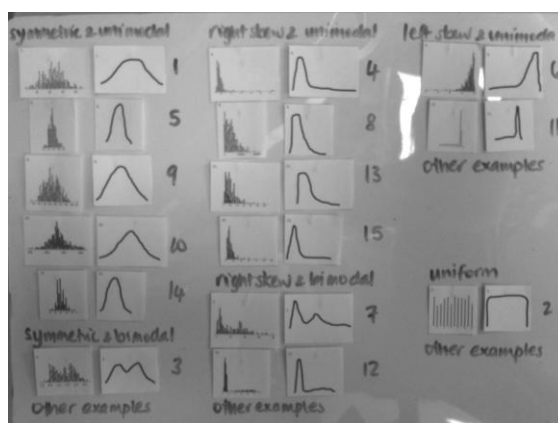 symmetric & unimodal
1
5
9
10
14
symmetric & bimodal
3
other examples
right skew & unimodal
4
8
13
15
right skew & bimodal
7
12
other examples
left skew & unimoda
other examples
uniform
2
other examples